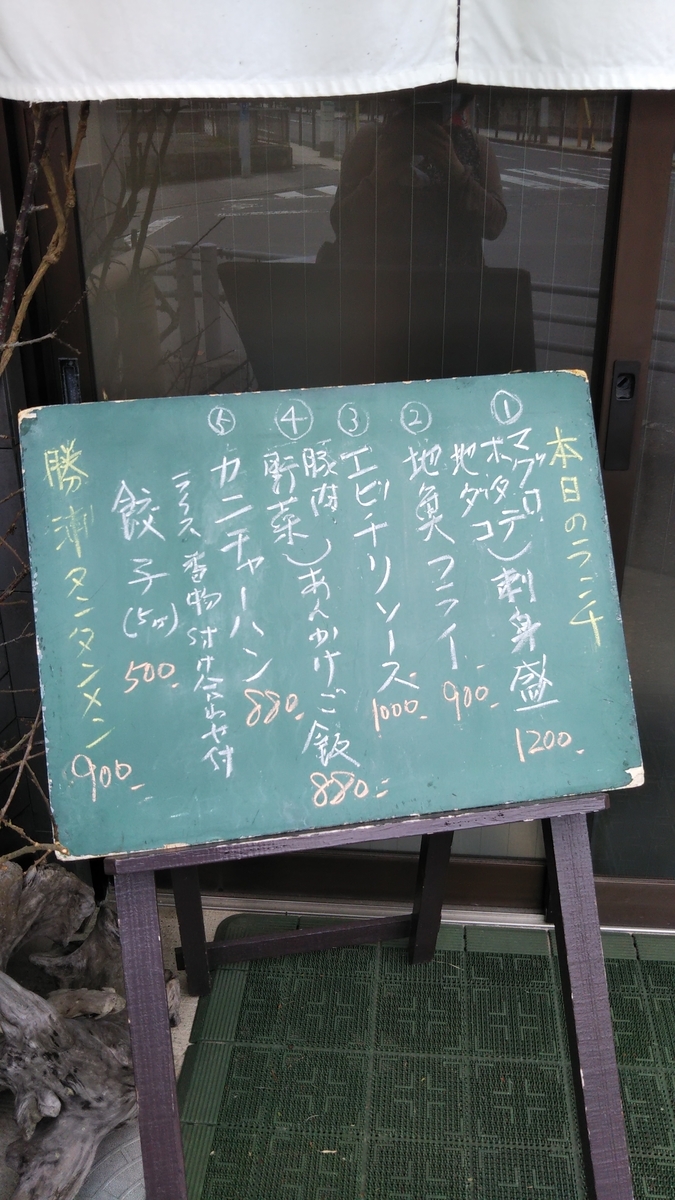 本日のランチ
① マグロ
ホタテ
地ダコ
)刺身盛
1200.-
② 地魚フライ
900.-
③ エビチリソース
1000.-
④ 豚肉
野菜
)あんかけご飯
880.-
⑤ カニチャーハン
880.-
ライス 香物 付け合わせ付
餃子(5ヶ)
500.-
勝浦タンタンメン
900.-